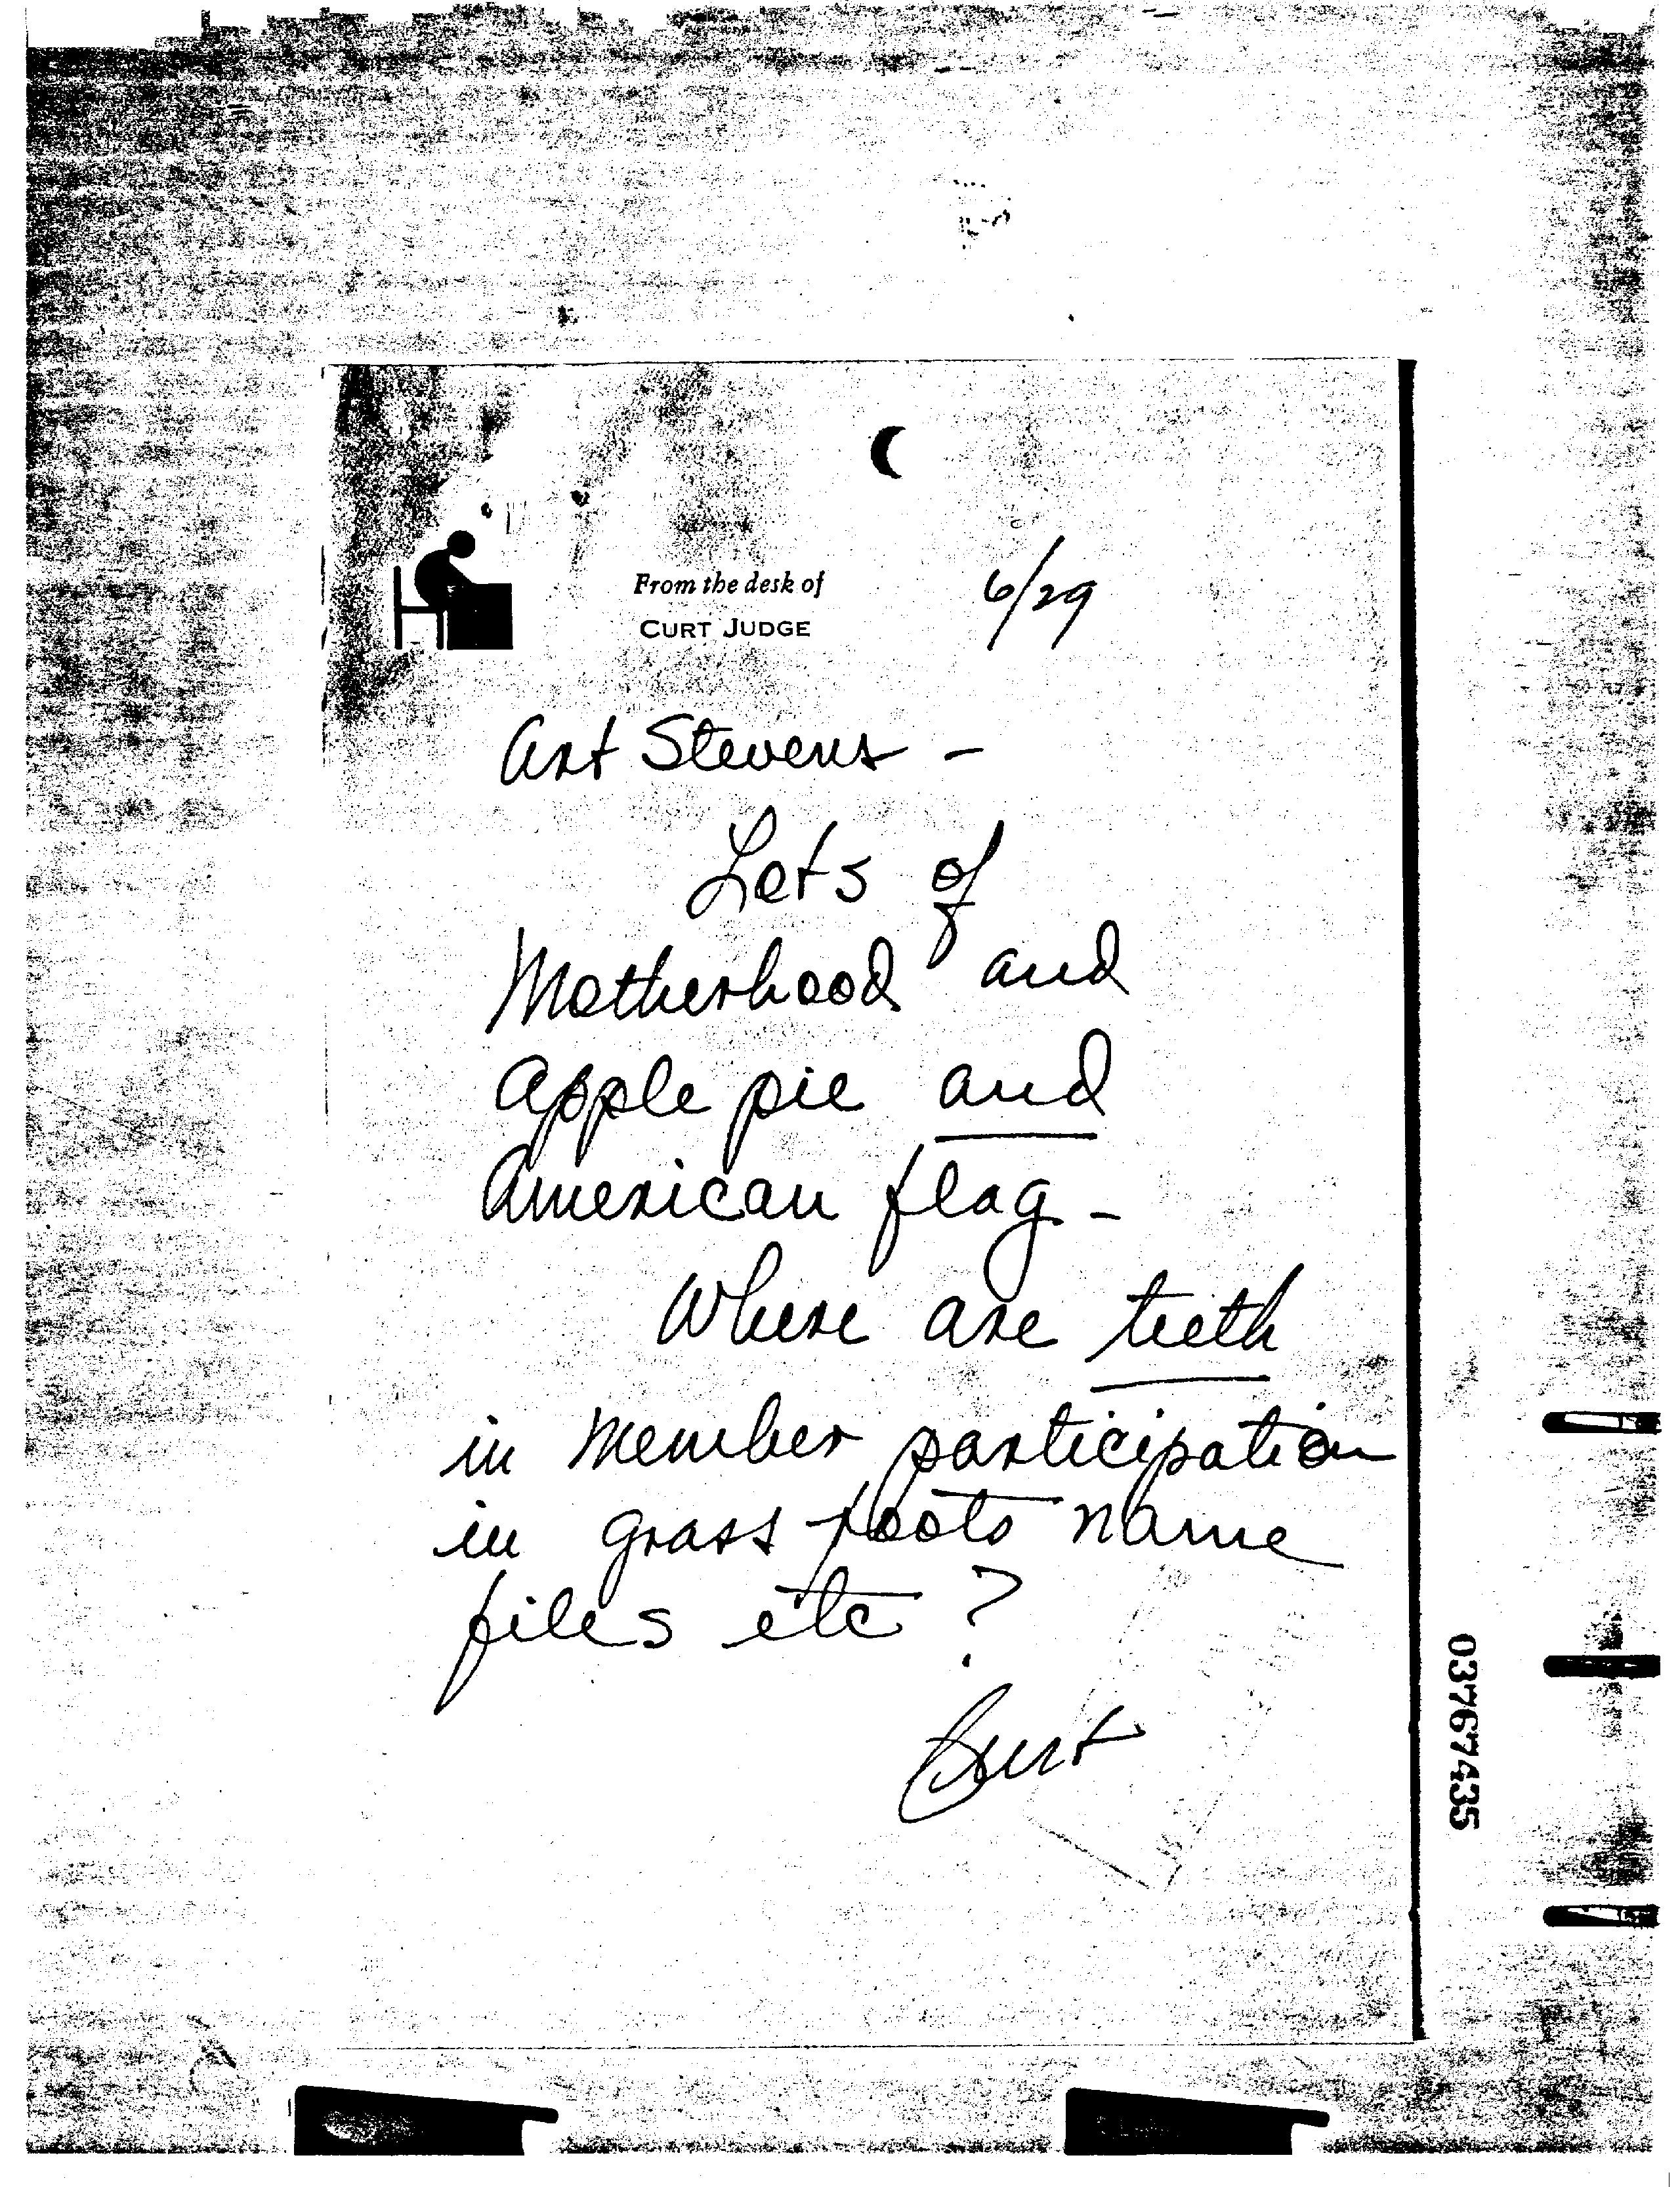 From the desk of
CURT JUDGE
6/29
Art Stevens -
Lots of
Motherhood and
Apple pie and
American flag -
Where are teeth
in member participation
in grass roots name
files etc ?
Curt
03767435